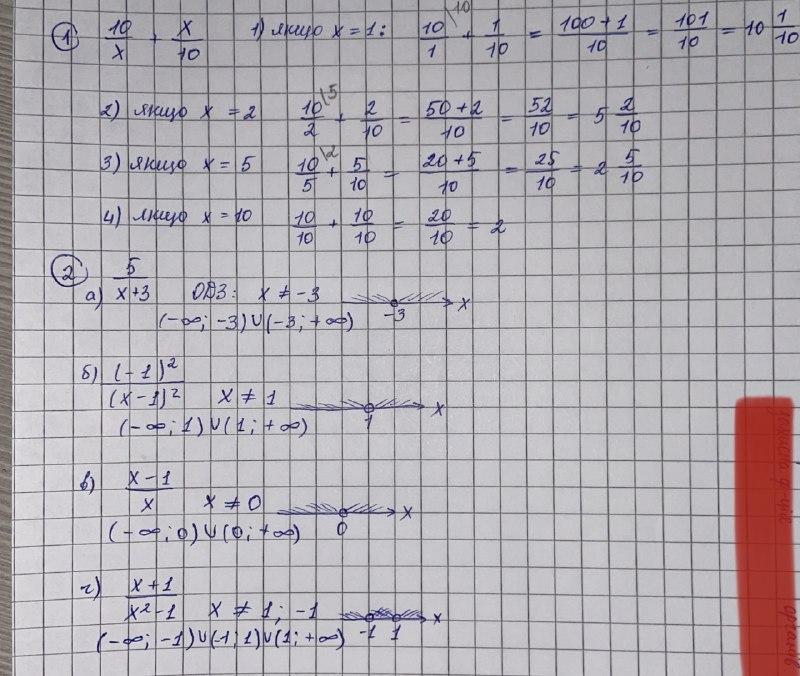 1 10/x + x/10 1) якщо x = 1: 10/1 \10 + 1/10 = 100+1/10 = 101/10 = 10 1/10
2) якщо x = 2 10/2 \5 + 2/10 = 50+2/10 = 52/10 = 5 2/10
3) якщо x = 5 10/5 \2 + 5/10 = 20+5/10 = 25/10 = 2 5/10
4) якщо x = 10 10/10 + 10/10 = 20/10 = 2
2 а) 5/x+3 ОДЗ: x ≠ -3 -3 x
(-∞; -3)∪(-3; +∞)
б) (-1)²/(x-1)² x ≠ 1 1 x
(-∞; 1)∪(1; +∞)
в) x-1/x x ≠ 0 0 x
(-∞; 0)∪(0; +∞)
г) x+1/x²-1 x ≠ 1; -1 -1 1 x
(-∞; -1)∪(-1; 1)∪(1; +∞)